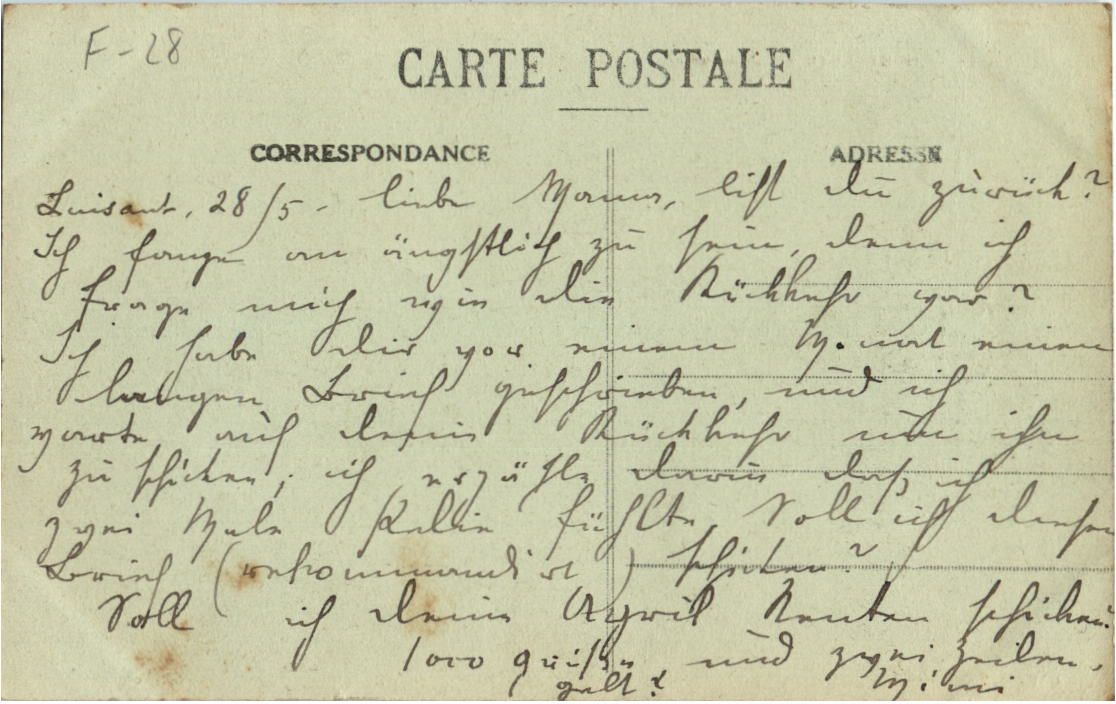 F-28
CARTE POSTALE
CORRESPONDANCE
ADRESSE
Luisant, 28/5. liebe Mama, bist du zurück?
Ich fange an ängstlich zu sein, denn ich
frage mich wie die Rückkehr war?
Ich habe dir vor einem Monat einen
langen Brief geschrieben, und ich
warte auf deine Rückkehr um ihn
zu schicken; ich erzähle darin daß ich
zwei Male fühlte. Soll ich diesen
Brief (rekommandirt) schicken?
Soll ich deine April Renten schicken?
1000 grüße und zwei Zeilen,
gelt? Mimi